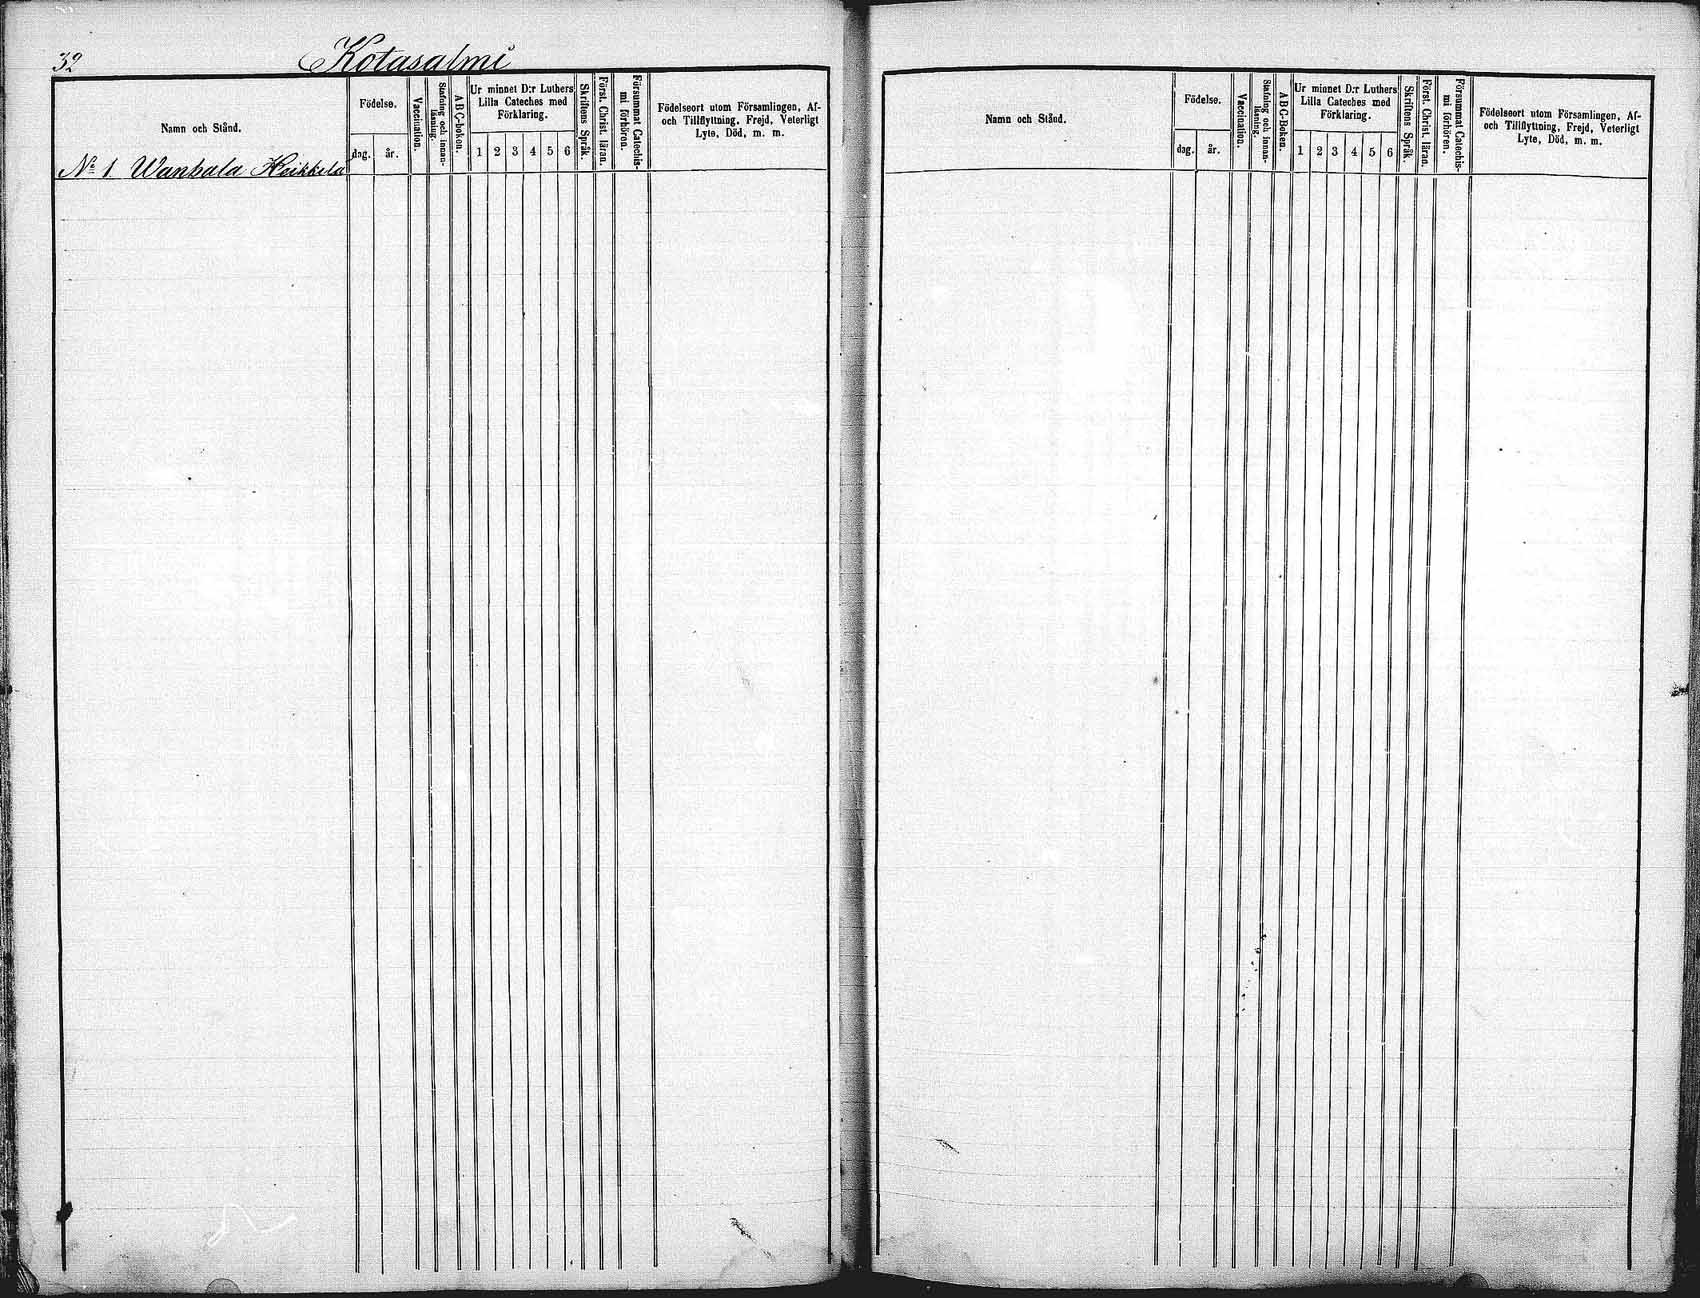 32 Kotasalmi
Namn och Stånd.
Födelse.
dag. år.
Vaccination.
Stafning och innan-
läsning.
ABC-boken.
Ur minnet D:r Luthers
Lilla Cateches med
Förklaring.
1 2 3 4 5 6
Skriftens Språk.
Först. Christ. läran.
Försummat Catechis-
mi förhören.
Födelseort utom Församlingen, Af-
och Tillflyttning, Frejd, Veterligt
Lyte, Död, m. m.
No 1 Wanhala Heikkilä
Namn och Stånd.
Födelse.
dag. år.
Vaccination.
Stafning och innan-
läsning.
ABC-Boken.
Ur minnet D:r Luthers
Lilla Cateches med
Förklaring.
1 2 3 4 5 6
Skriftens Språk.
Först. Christ. läran.
Försummat Catechis-
mi förhören.
Födelseort utom Församlingen, Af-
och Tillflyttning, Frejd, Veterligt
Lyte, Död, m. m.